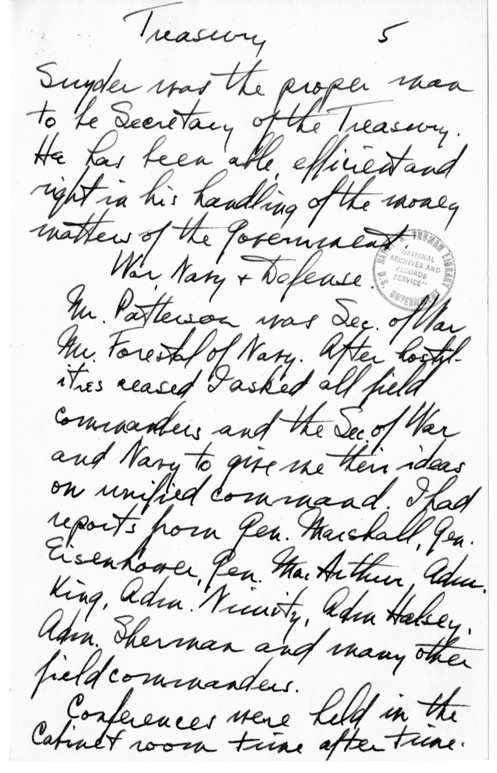 Treasury 5
Snyder was the proper man
to be Secretary of the Treasury.
He has been able, efficient and
right in his handling of the money
matters of the Government.
War, Navy + Defense.
Mr. Patterson was Sec. of War
Mr. Forestal of Navy. After hostil-
ities ceased I asked all field
commanders and the Sec. of War
and Navy to give me their ideas
on unified command. I had
reports from Gen. Marshall, Gen.
Eisenhower, Gen. MacArthur, Adm.
King, Adm. Nimitz, Adm Halsey,
Adm. Sherman and many other
field commanders.
Conferences were held in the
Cabinet room time after time.
HARRY S. TRUMAN LIBRARY
"NATIONAL
ARCHIVES AND
RECORDS
SERVICE"
U.S. GOVERNMENT